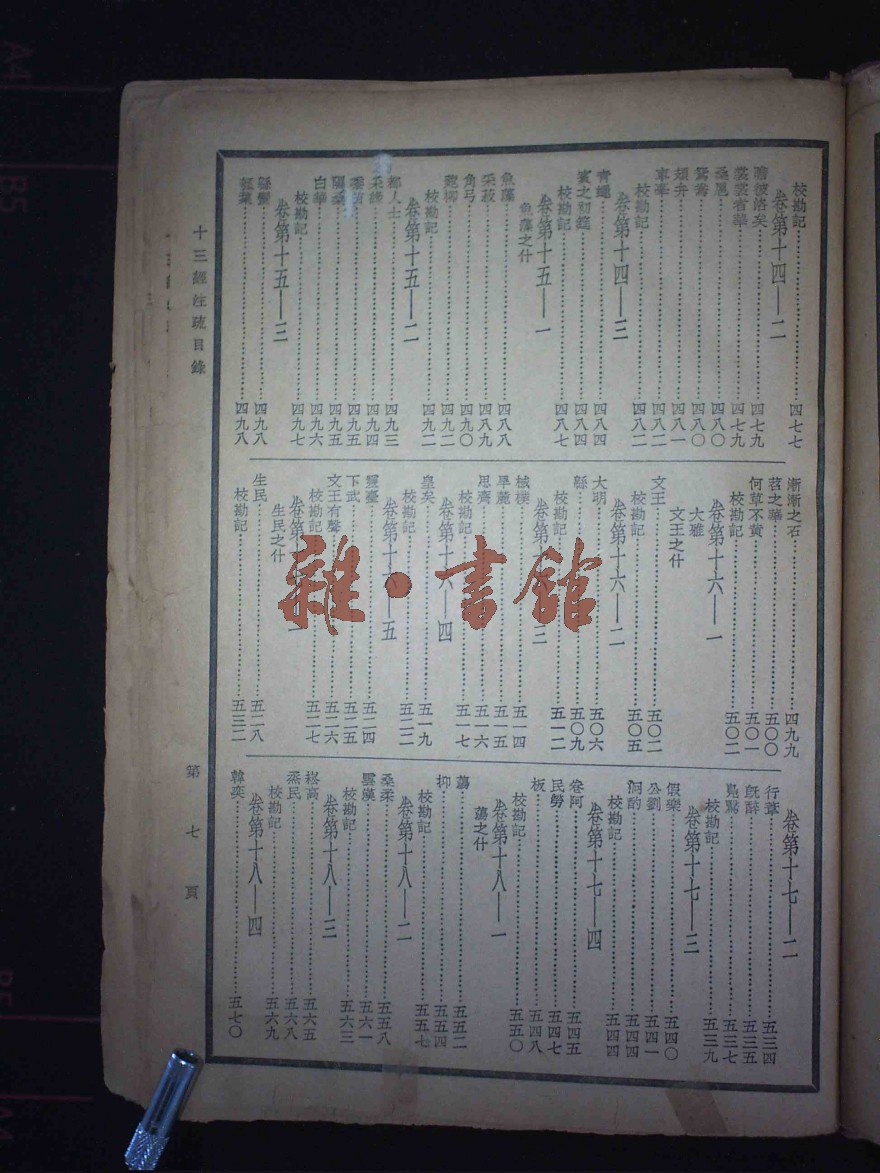 校勘記 四七七
卷第十四——二
瞻彼洛矣 四七九
裳裳者華 四七九
桑扈 四八〇
鴛鴦 四八一
頍弁 四八二
車舝
校勘記 四八二
卷第十四——三
青蠅 四八四
賓之初筵 四八四
校勘記 四八七
卷第十五——一
魚藻之什
魚藻 四八八
采菽 四八九
角弓 四九〇
菀柳 四九二
校勘記 四九二
卷第十五——二
都人士 四九三
采綠 四九四
黍苗 四九五
隰桑 四九五
白華 四九六
校勘記 四九七
卷第十五——三
緜蠻 四九八
瓠葉 四九八
漸漸之石 四九九
苕之華 五〇〇
何草不黃 五〇一
校勘記 五〇二
卷第十六——一
大雅
文王之什
文王 五〇二
校勘記 五〇五
卷第十六——二
大明 五〇六
緜 五〇九
校勘記 五一二
卷第十 三
棫樸 五一四
旱麓 五一五
思齊 五一六
校勘記 五一七
卷第十六——四
皇矣 五一九
校勘記 五二二
卷第十六——五
靈臺 五二四
下武 五二五
文王有聲 五二六
校勘記 五二七
卷第
生民之什
生民 五二八
校勘記 五三二
卷第十七——二
行葦 五三四
既醉 五三五
鳧鷖 五三七
校勘記 五三九
卷第十七——三
假樂 五四〇
公劉 五四一
泂酌 五四四
校勘記 五四四
卷第十七——四
卷阿 五四五
民勞 五四七
板 五四八
校勘記 五五〇
卷第十八——一
蕩之什
蕩 五五二
抑 五五四
校勘記 五五七
卷第十八——二
桑柔 五五八
雲漢 五六一
校勘記 五六三
卷第十八——三
崧高 五六五
烝民 五六八
校勘記 五六九
卷第十八——四
韓奕 五七〇
十三經注疏目錄
第七頁
雜·書館